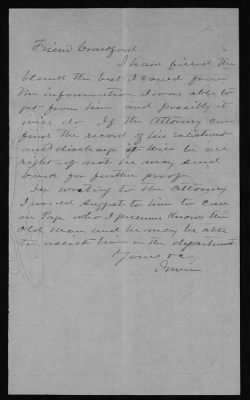 Friend Crawford
I have filled the
blank the best I could from
the information I was able to
get from him and possibly it
will do. If the Attorney can
find the record of his enlistment
and discharge it will be all
right - if not he may send
back for further proof.
In writing to the Attorney
I would suggest to him to call
on Page who I presume knows the
old man and he may be able
to assist him in the department
Yours &c
Irwin